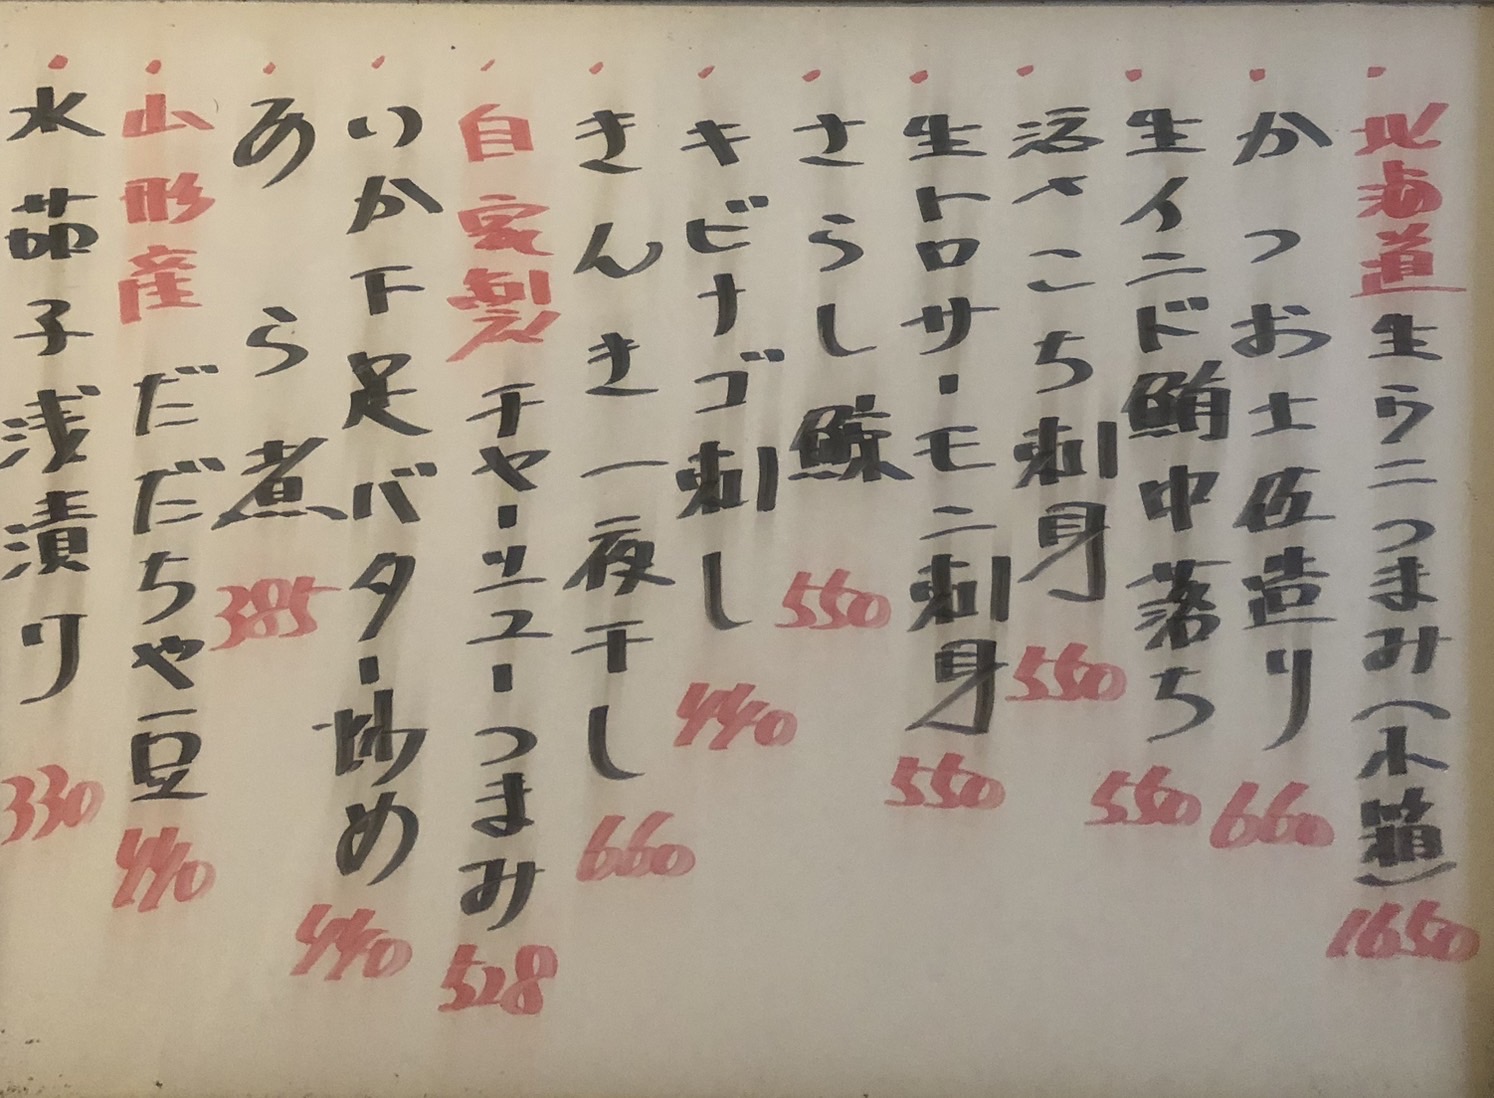 ・北海道生ウニつまみ(木箱) 1650
・かつお土佐造り 660
・生インド鮪中落ち 550
・活〆こち刺身 550
・生トロサーモン刺身 550
・さらし鯨 550
・キビナゴ刺し 440
・きんき一夜干し 660
・自家製チャーシューつまみ 528
・いか下足バター炒め 440
・あら煮 385
・山形産だだちゃ豆 440
・水茄子浅漬り 330